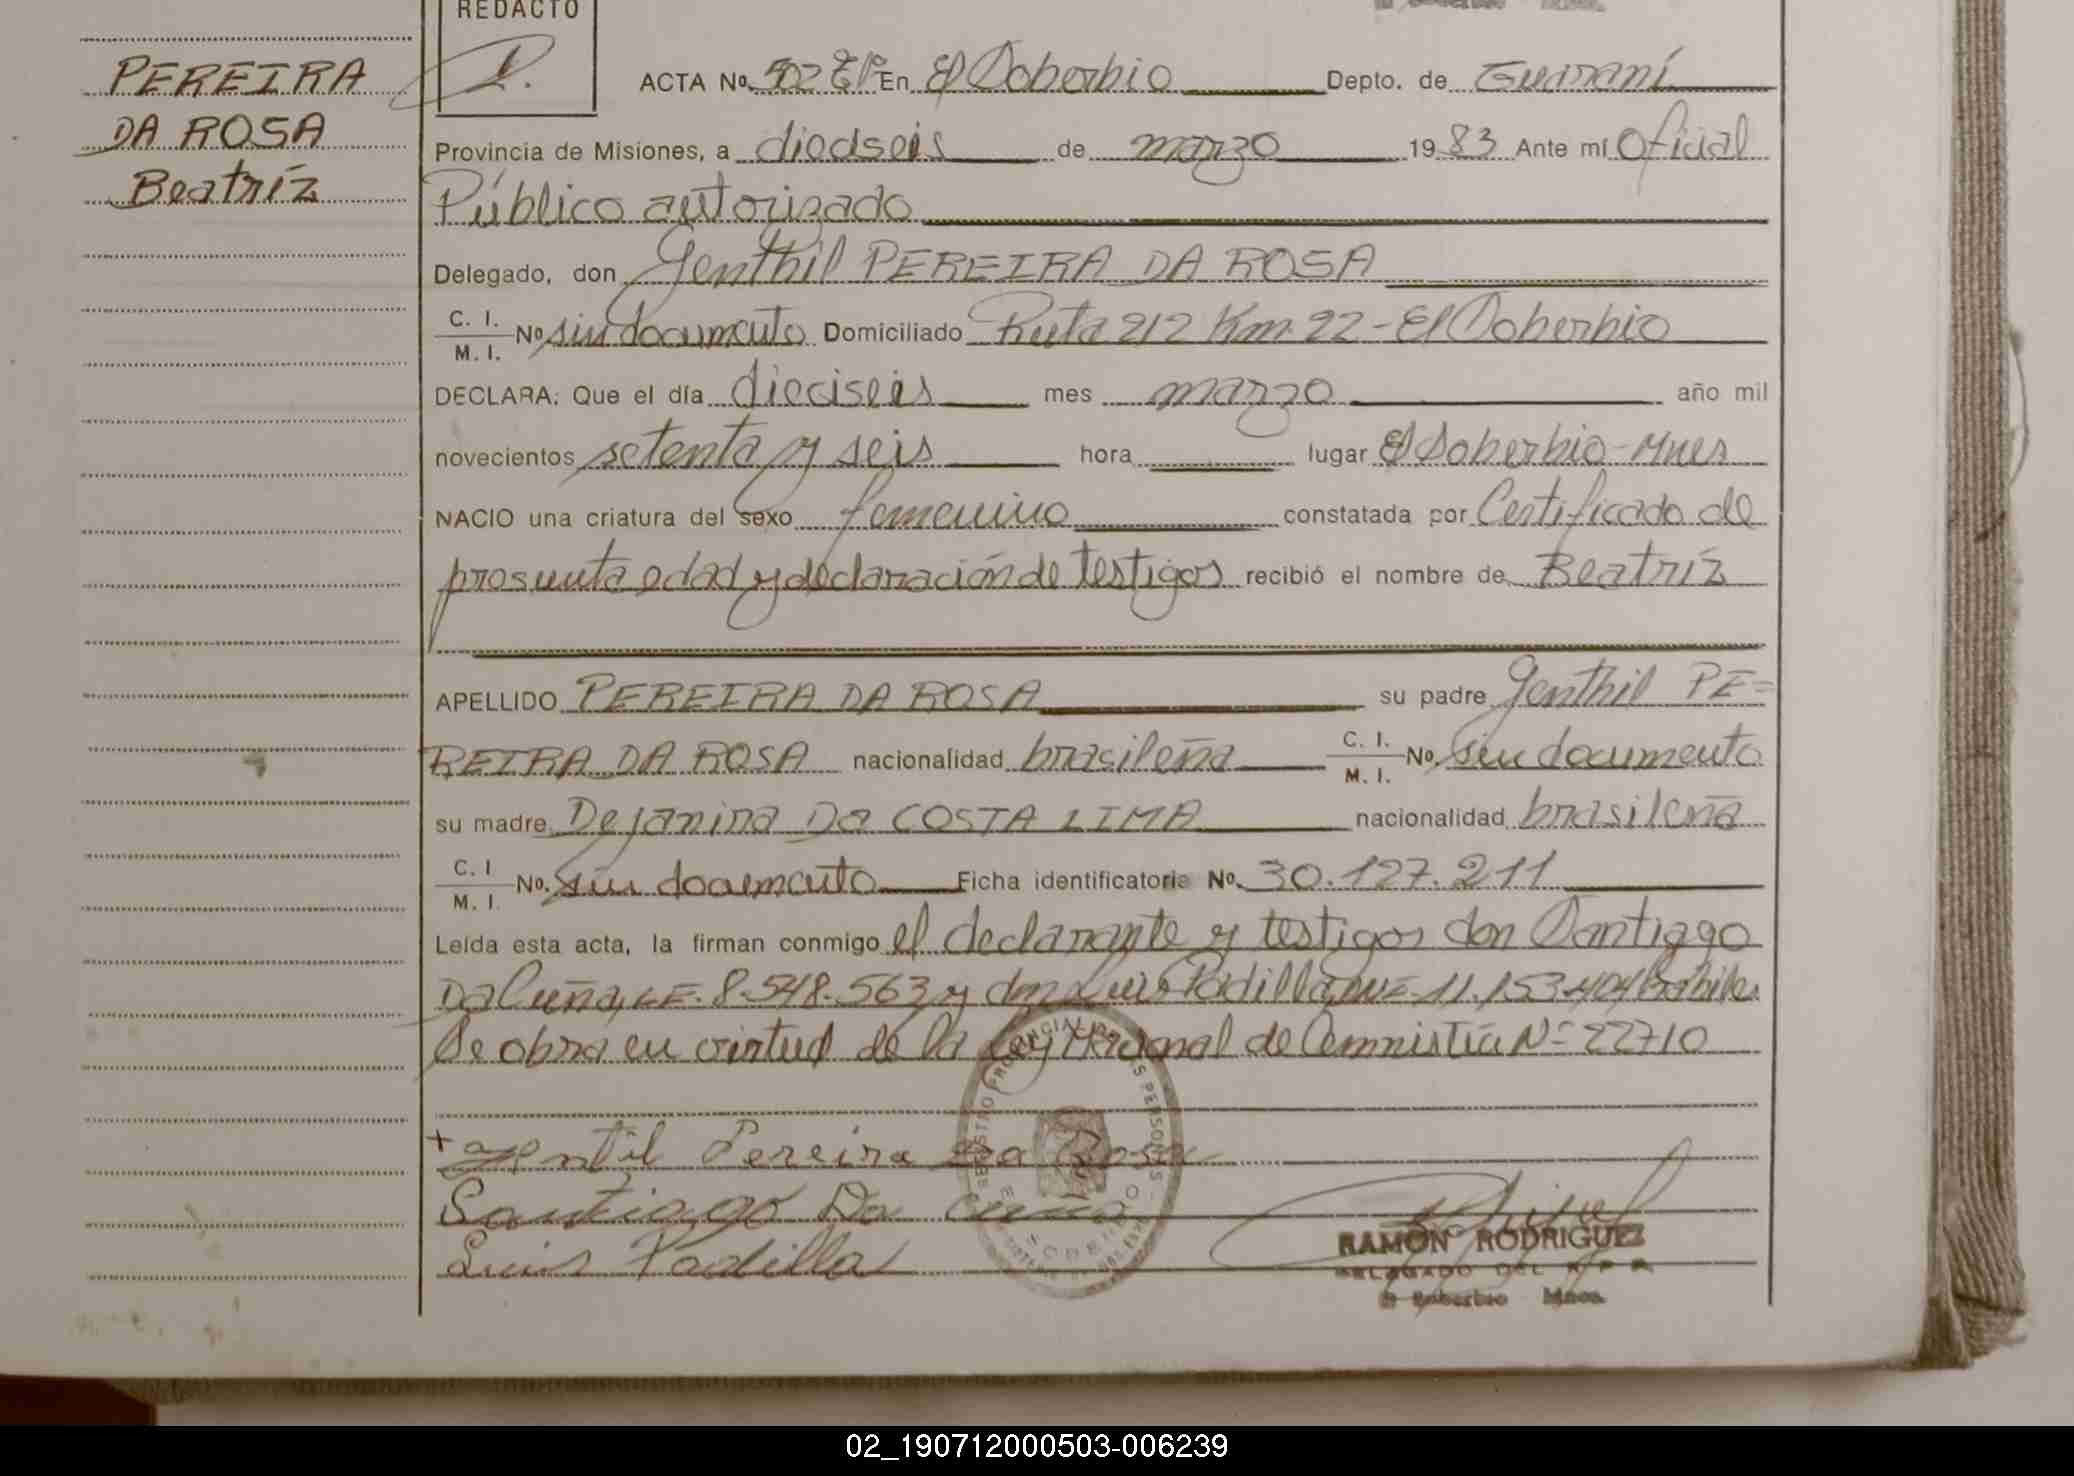 REDACTO
PEREIRA
DA ROSA
Beatríz
ACTA No. 502 En El Soberbio Depto. de Guaraní
Provincia de Misiones, a dieciseis de marzo 1983 Ante mí Oficial
Público autorizado
Delegado, don Genthil PEREIRA DA ROSA
C. I. M. I. No sin documento Domiciliado Ruta 212 Km. 22 - El Soberbio
DECLARA: Que el día dieciseis mes marzo año mil
novecientos setenta y seis hora lugar El Soberbio - Mnes
NACIO una criatura del sexo femenino constatada por Certificado de
presunta edad y declaración de testigos recibió el nombre de Beatríz
APELLIDO PEREIRA DA ROSA su padre Genthil PE=
REIRA DA ROSA nacionalidad brasileña C. I. M. I. No. sin documento
su madre Dejanira Da COSTA LIMA nacionalidad brasileña
C. I M. I. No. sin documento Ficha identificatoria No. 30.127.211
Leída esta acta, la firman conmigo el declarante y testigos don Santiago
Da Cuña, L.E. 8.548.563 y don Luis Padilla, DNI= 11.153.404
Se obra en virtud de la Ley Nacional de Amnistía N= 22710
+ gentil Pereira da Rosa
Santiago Da Cuña
Luis Padilla
RAMON RODRIGUEZ
DELEGADO DEL R P P
El Soberbio Mnes.
02_190712000503-006239